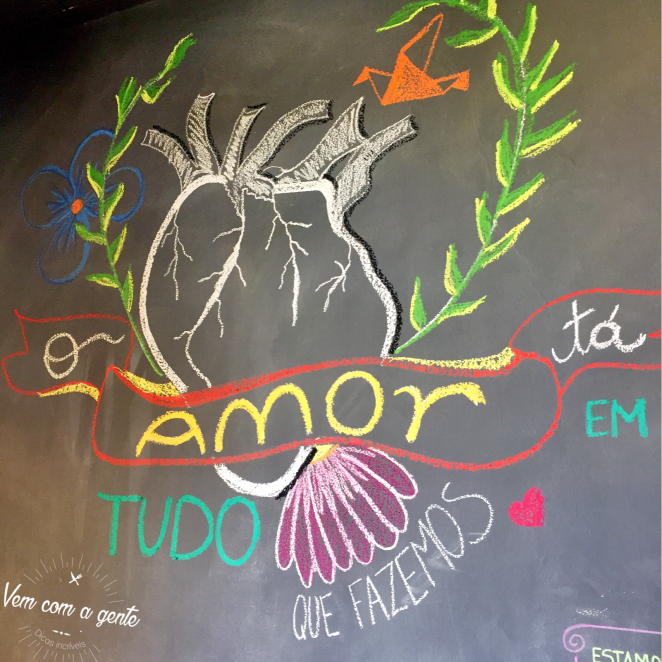 o
AMOR
tá
EM
TUDO
QUE FAZEMOS
Vem com a gente
Dicas incríveis
ESTAMO